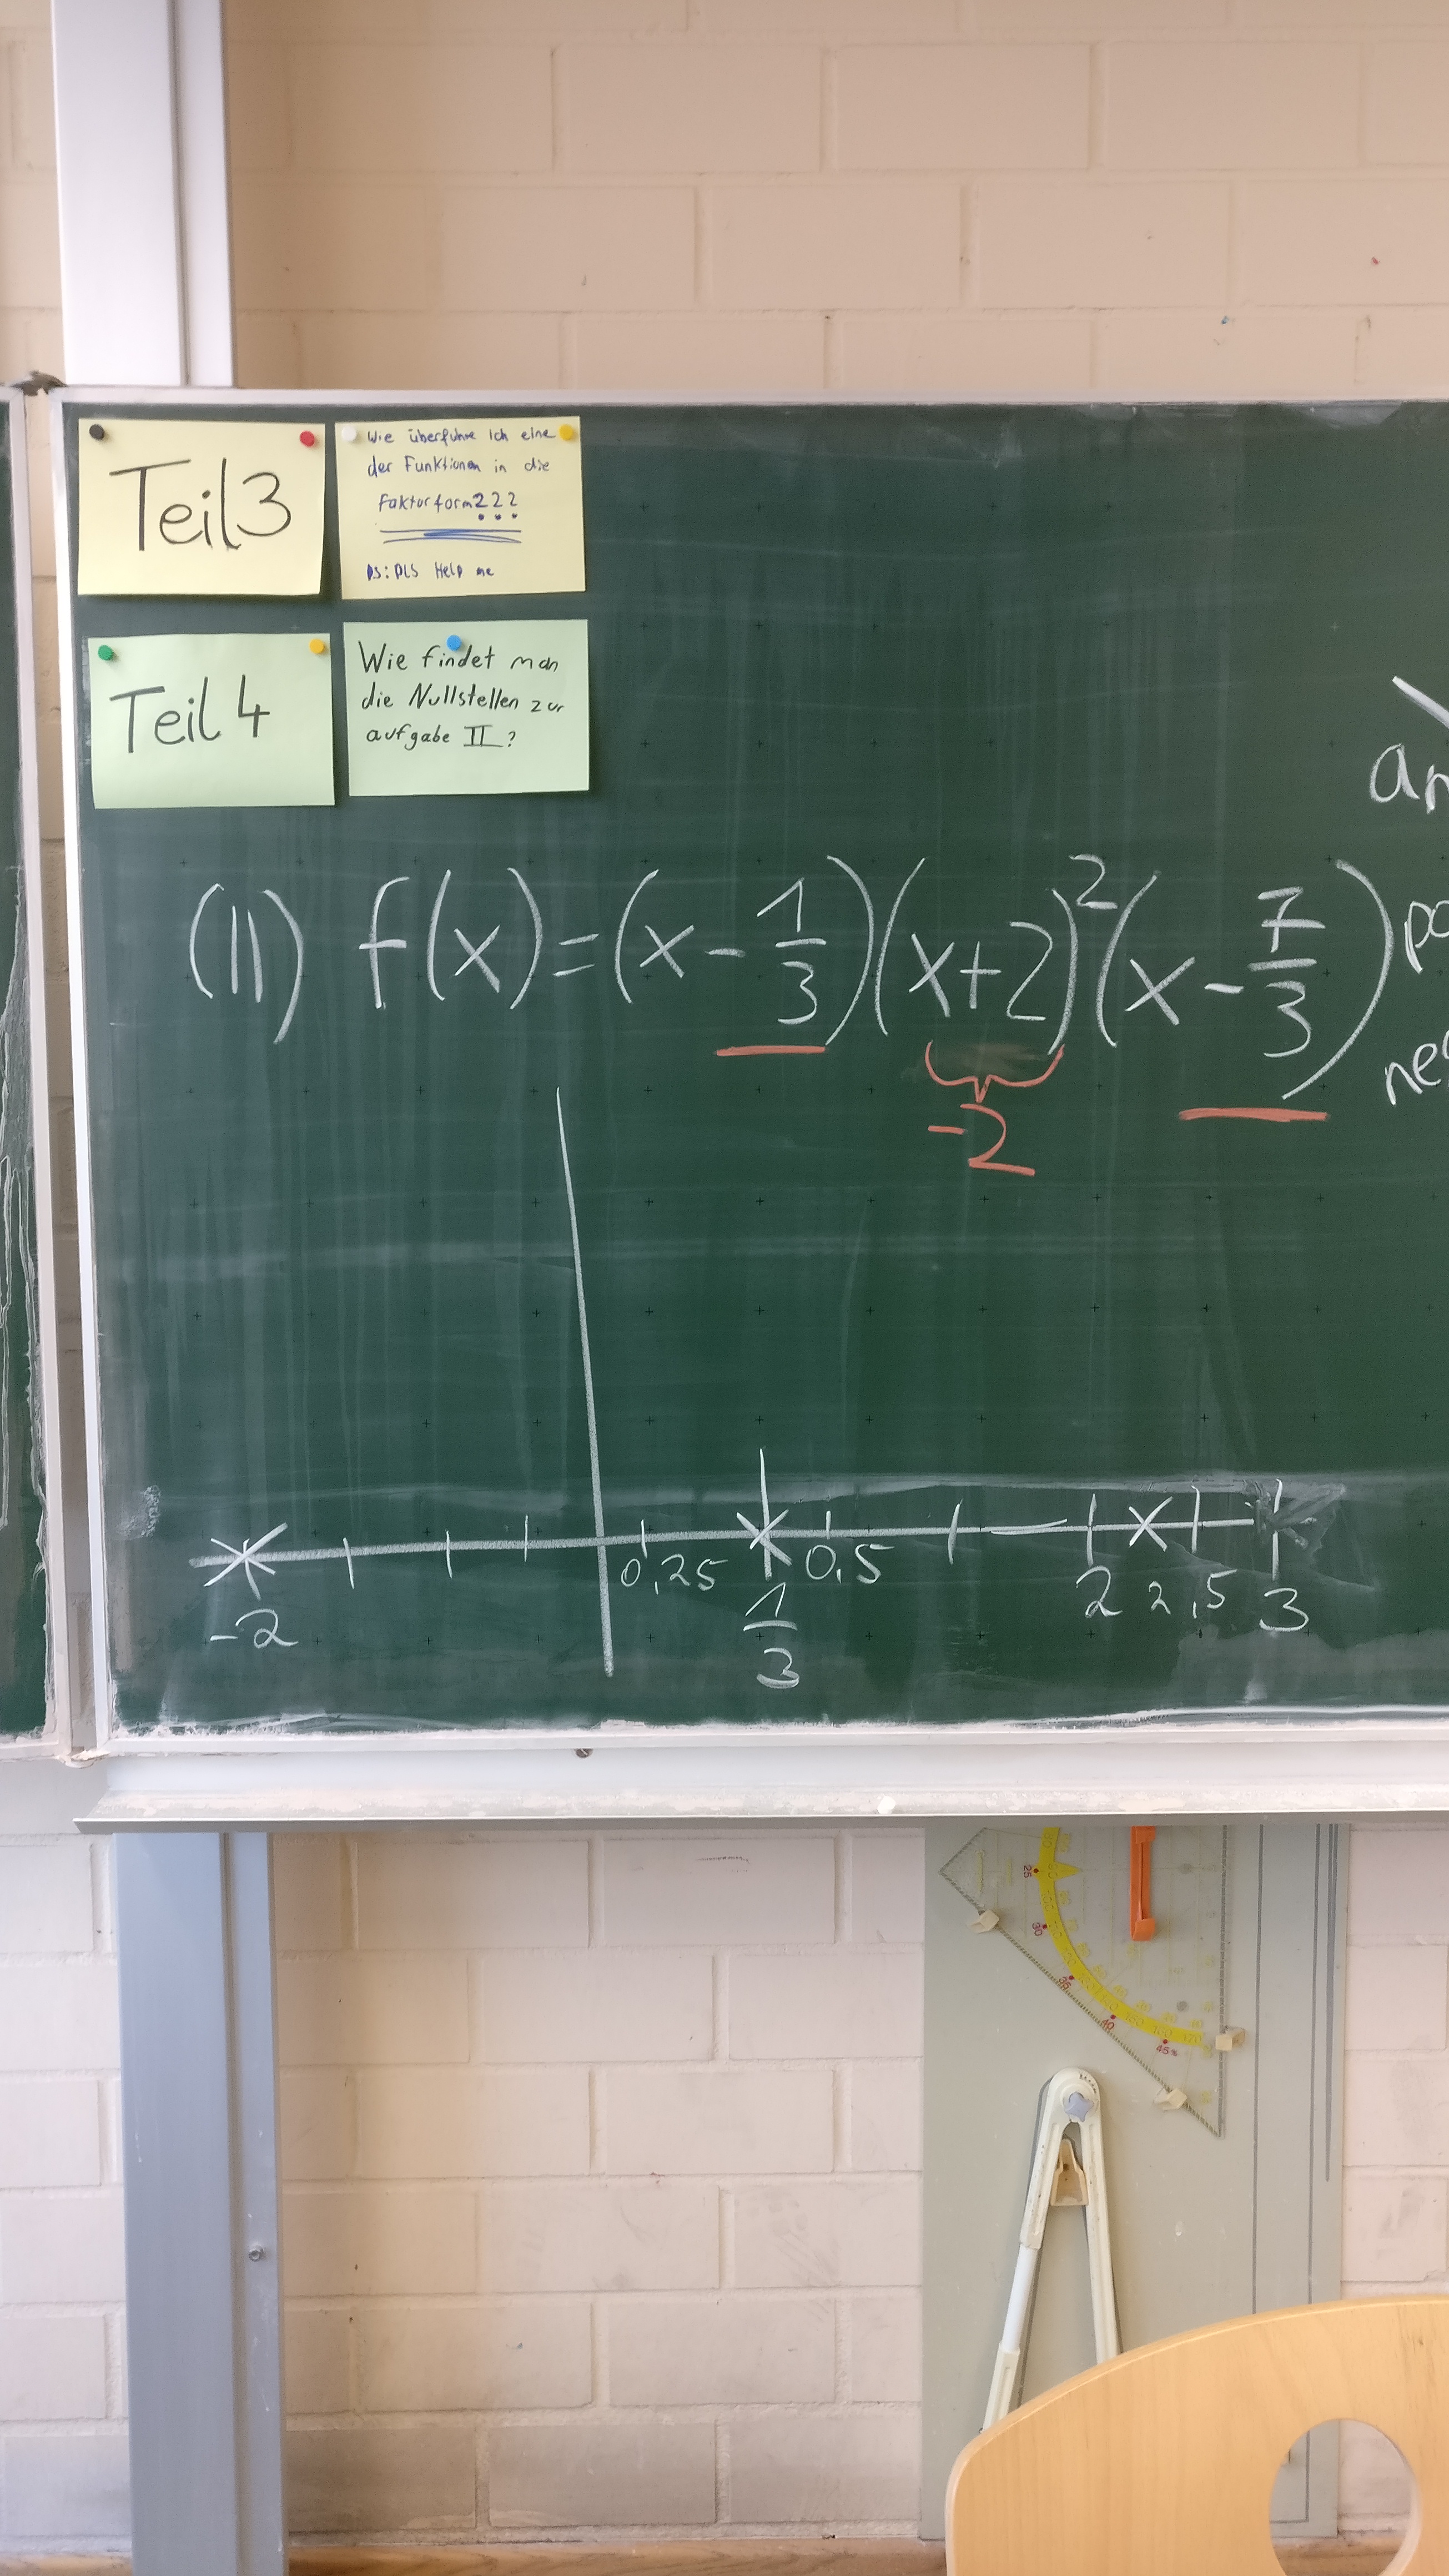 Teil 3
Wie überführe ich eine
der Funktionen in die
Faktorform???
PS: PLS Help me
Teil 4
Wie findet man
die Nullstellen zur
aufgabe II?
(II) f(x) = (x - 1/3)(x+2)²(x - 7/3)
-2
-2 0,25 1/3 0,5 2 2,5 3